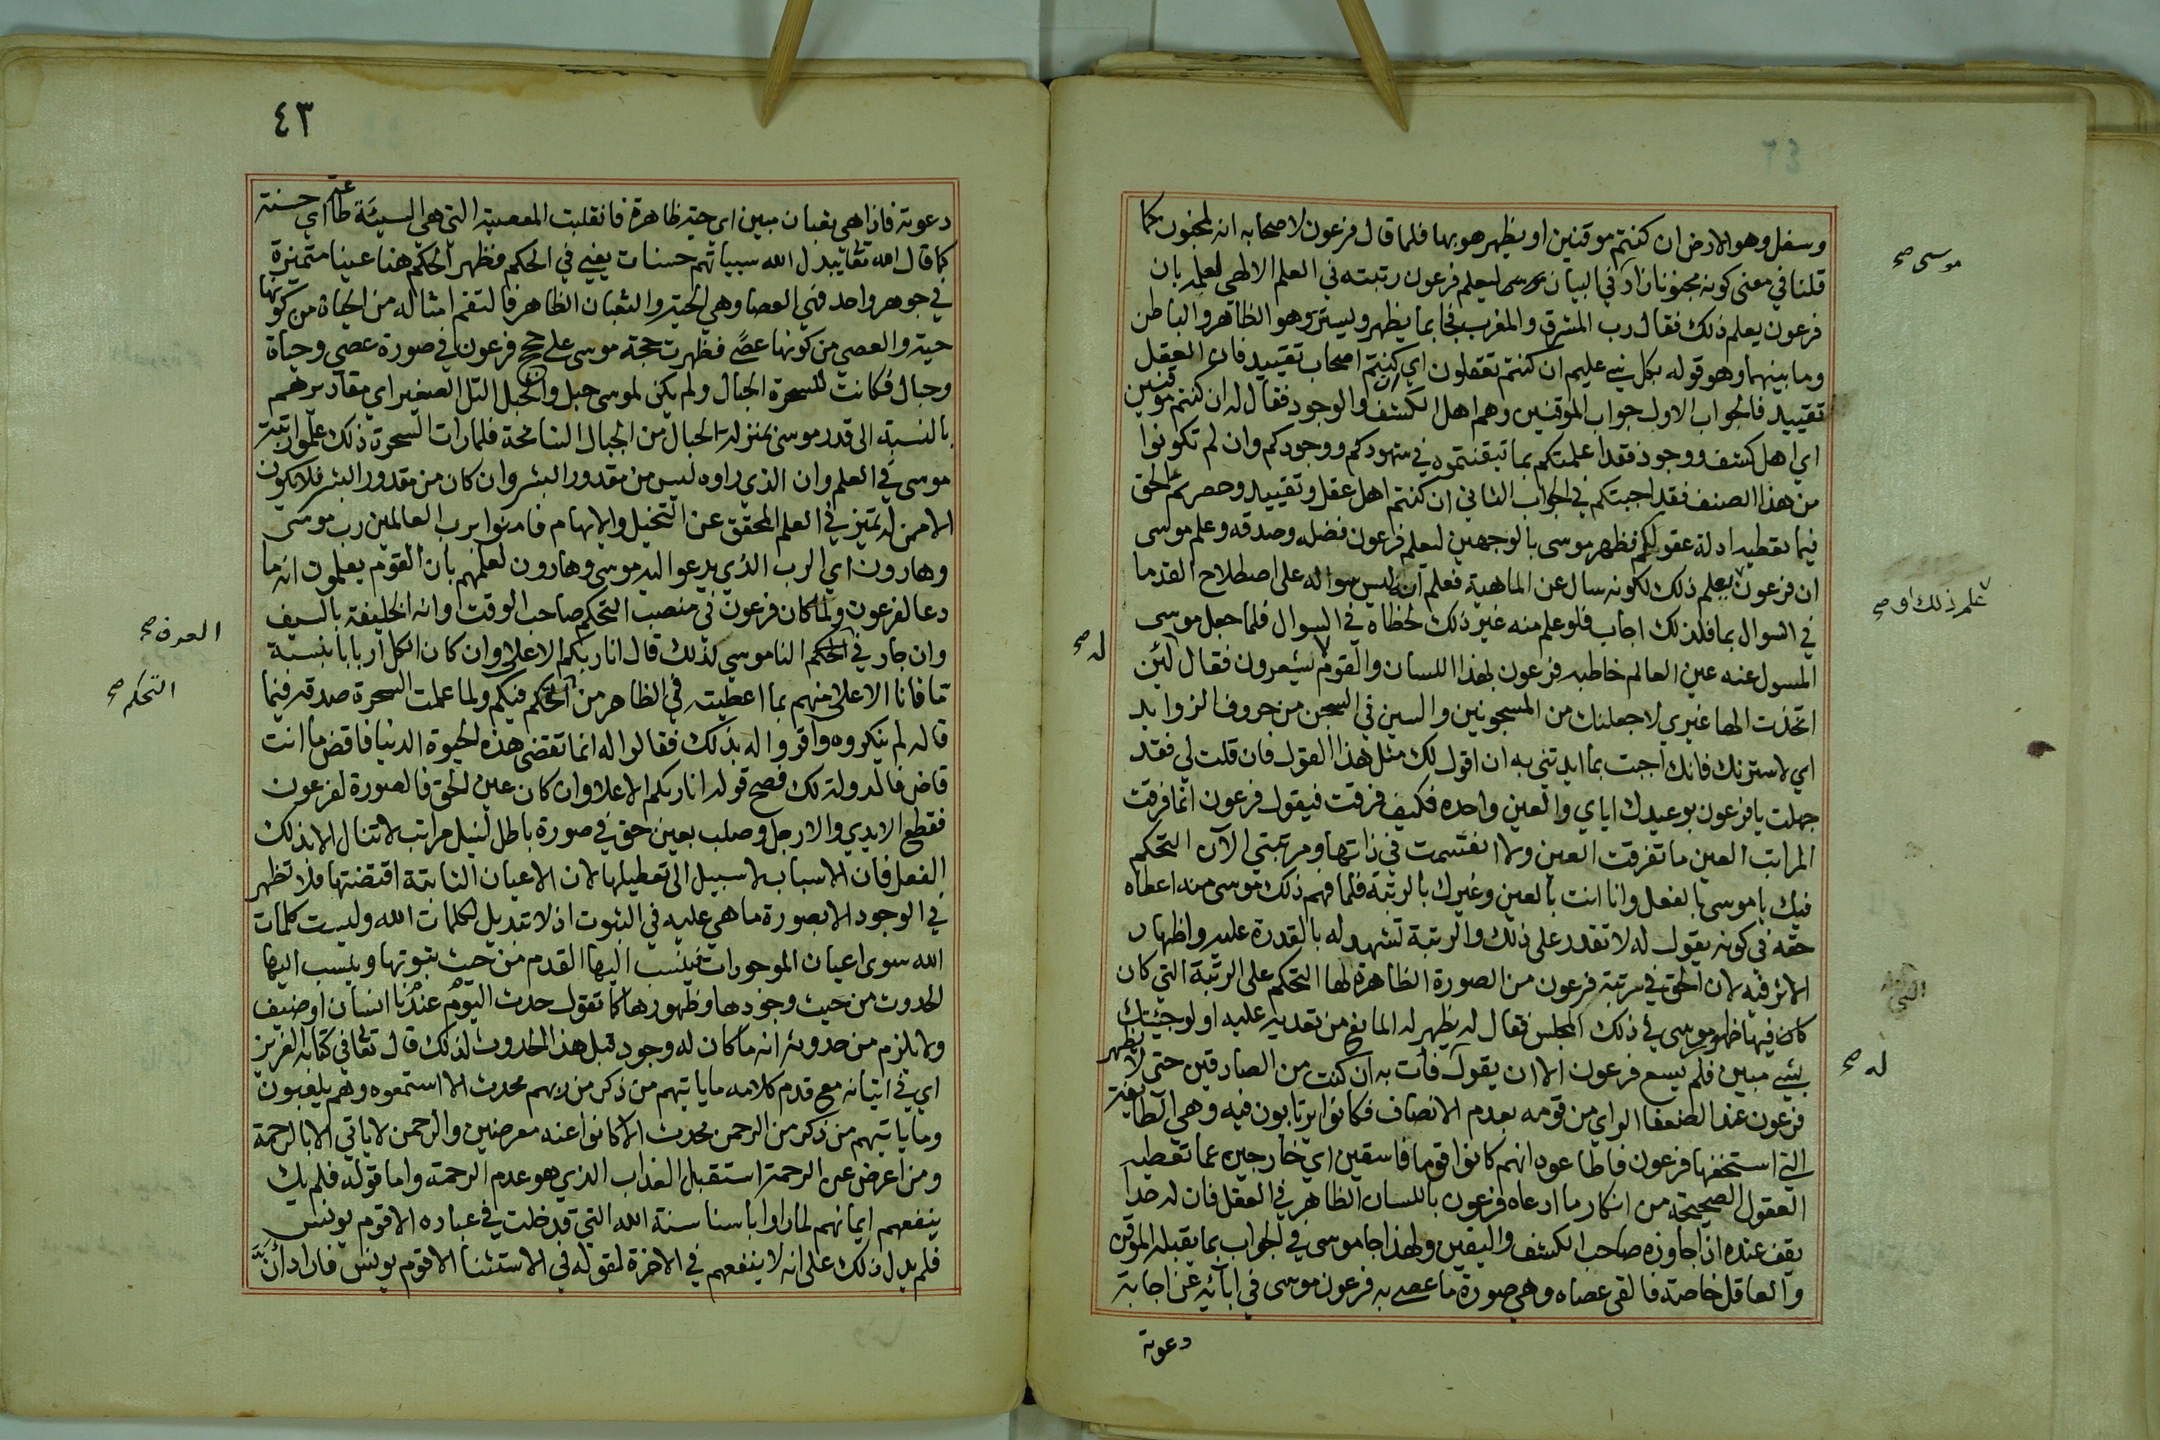 وسفل وهو الارض ان كنتم موقنين او يظهر هو بها فلما قال فرعون لاصحابه انه لمجنون كما
قلنا في معنى كونه مجنونا زاد في البيان موسى ليعلم فرعون رتبته في العلم الالهى لعلمه بان
فرعون يعلم ذلك فقال رب المشرق والمغرب فجا بما يظهر ويستر وهو الظاهر والباطن
وما بينهما وهو قوله بكل شي عليم ان كنتم تعقلون اي كنتم اصحاب تقييد فان العقل
تقييد فالجواب الاول جواب الموقنين وهم اهل الكشف والوجود فقال له ان كنتم موقنين
اي اهل كشف ووجود فقد اعلمتكم بما تيقنتموه في شهودكم ووجودكم وان لم تكونوا
من هذا الصنف فقد اجبتكم في الجواب الثاني ان كنتم اهل عقل وتقييد وحصرتم الحق
فيما تعطيه ادلة عقولكم فظهر موسى بالوجهين ليعلم فرعون فضله وصدقه وعلم موسى
ان فرعون يعلم ذلك لكونه سال عن الماهية فعلم انه ليس سواله على اصطلاح القدما
في السوال بما فلذلك اجاب فلو علم منه غير ذلك لخطاه في السوال فلما جعل موسى
المسول عنه عين العالم خاطبه فرعون بهذا اللسان والقوم لا يشعرون فقال لئن
اتخذت الها غيري لاجعلنك من المسجونين والسين في السجن من حروف الزوايد
اي لاسترنك فانك اجبت بما ايدتني به ان اقول لك مثل هذا القول فان قلت لي فقد
جهلت يا فرعون بوعيدك اياي والعين واحده فكيف فرقت فيقول فرعون انما فرقت
المراتب العين ما تفرقت العين ولا انقسمت في ذاتها ومرتبتي الآن التحكم
فيك يا موسى بالفعل وانا انت بالعين وغيرك بالرتبة فلما فهم ذلك موسى منه اعطاه
حقه في كونه يقول له لا تقدر على ذلك والرتبة تشهد له بالقدرة عليه واظهار
الاثر فيه لان الحق في مرتبة فرعون من الصورة الظاهرة لها التحكم على الرتبة التي كان
كان فيها ظهور موسى في ذلك المجلس فقال له يظهر له المانع من تعديه عليه اولو جئتك
بشي مبين فلم يسع فرعون الا ان يقول فأت به ان كنت من الصادقين حتى لا يظهر
فرعون عند الضعفا الراي من قومه بعدم الانصاف فكانوا يرتابون فيه وهي الطايفة
التي استخفها فرعون فاطاعوه انهم كانوا قوما فاسقين اي خارجين عما تعطيه
العقول الصحيحة من انكار ما ادعاه فرعون باللسان الظاهر في العقل فان له حدا
يقف عنده اذا جاوزه صاحب الكشف واليقين ولهذا جا موسى في الجواب بما يقبله الموقن
والعاقل خاصة فالقى عصاه وهي صورة ما عصى به فرعون موسى في ابائه عن اجابة
دعوته
موسى صح
علم ذلك او صح
له صح
له صح
٤٣
دعوته فاذا هي ثعبان مبين اي حية ظاهرة فانقلبت المعصية التي هي السيئة طاعة اي حسنة
كما قال الله تعا يبدل الله سيياتهم حسنات يعني في الحكم فظهر الحكم هنا عينا متميزة
في جوهر واحد فهي العصا وهي الحية والثعبان الظاهر فالتقم امثاله من الحياة من كونها
حية والعصي من كونها عصًى فظهرت حجة موسى على حجج فرعون في صورة عصي وحياة
وحبال فكانت للسحرة الحبال ولم يكن لموسى حبل والحبل التل الصغير اي مقاديرهم
بالنسبة الى قدر موسى بمنزلة الحبال من الجبال الشامخة فلما رات السحرة ذلك علموا رتبة
موسى في العلم وان الذي راوه ليس من مقدور البشر وان كان من مقدور البشر فلا يكون
الا ممن له تميز في العلم المحقق عن التخيل والايهام فامنوا برب العالمين رب موسى
وهارون اي الرب الذي يدعوا اليه موسى وهارون لعلمهم بان القوم يعلمون انه ما
دعا لفرعون ولما كان فرعون في منصب التحكم صاحب الوقت وانه الخليفة بالسيف
وان جار في الحكم الناموسي كذلك قال انا ربكم الاعلى وان كان الكل اربابا بنسبة
ما فانا الاعلى منهم بما اعطيته في الظاهر من الحكم فيكم ولما علمت السحرة صدقه فيما
قاله لم ينكروه واقروا له بذلك فقالوا له انما تقضي هذه الحيوة الدنيا فاقض ما انت
قاض فالدولة لك فصح قوله انا ربكم الاعلا وان كان عين الحق فالصورة لفرعون
فقطع الايدي والارجل وصلب بعين حق في صورة باطل لنيل مراتب لا تنال الا بذلك
الفعل فان الاسباب لا سبيل الى تعطيلها لان الاعيان الثابتة اقتضتها فلا تظهر
في الوجود الا بصورة ما هي عليه في الثبوت اذ لا تبديل لكلمات الله وليست كلمات
الله سوى اعيان الموجودات فينسب اليها القدم من حيث ثبوتها وينسب اليها
الحدوث من حيث وجودها وظهورها كما تقول حدث اليوم عندنا انسان او ضيف
ولا يلزم من حدوثه انه ما كان له وجود قبل هذا الحدوث لذلك قال تعا في كتابه العزيز
اي في اتيانه مع قدم كلامه ما ياتيهم من ذكر من ربهم محدث الا استمعوه وهم يلعبون
وما ياتيهم من ذكر من الرحمن محدث الا كانوا عنه معرضين والرحمن لا ياتي الا بالرحمة
ومن اعرض عن الرحمة استقبل العذاب الذي هو عدم الرحمة واما قوله فلم يك
ينفعهم ايمانهم لما راوا باسنا سنة الله التي قد خلت في عباده الا قوم يونس
فلم يدل ذلك على انه لا ينفعهم في الاخرة لقوله في الاستثنا الا قوم يونس فاراد أنَّ
العرف صح
التحكم صح